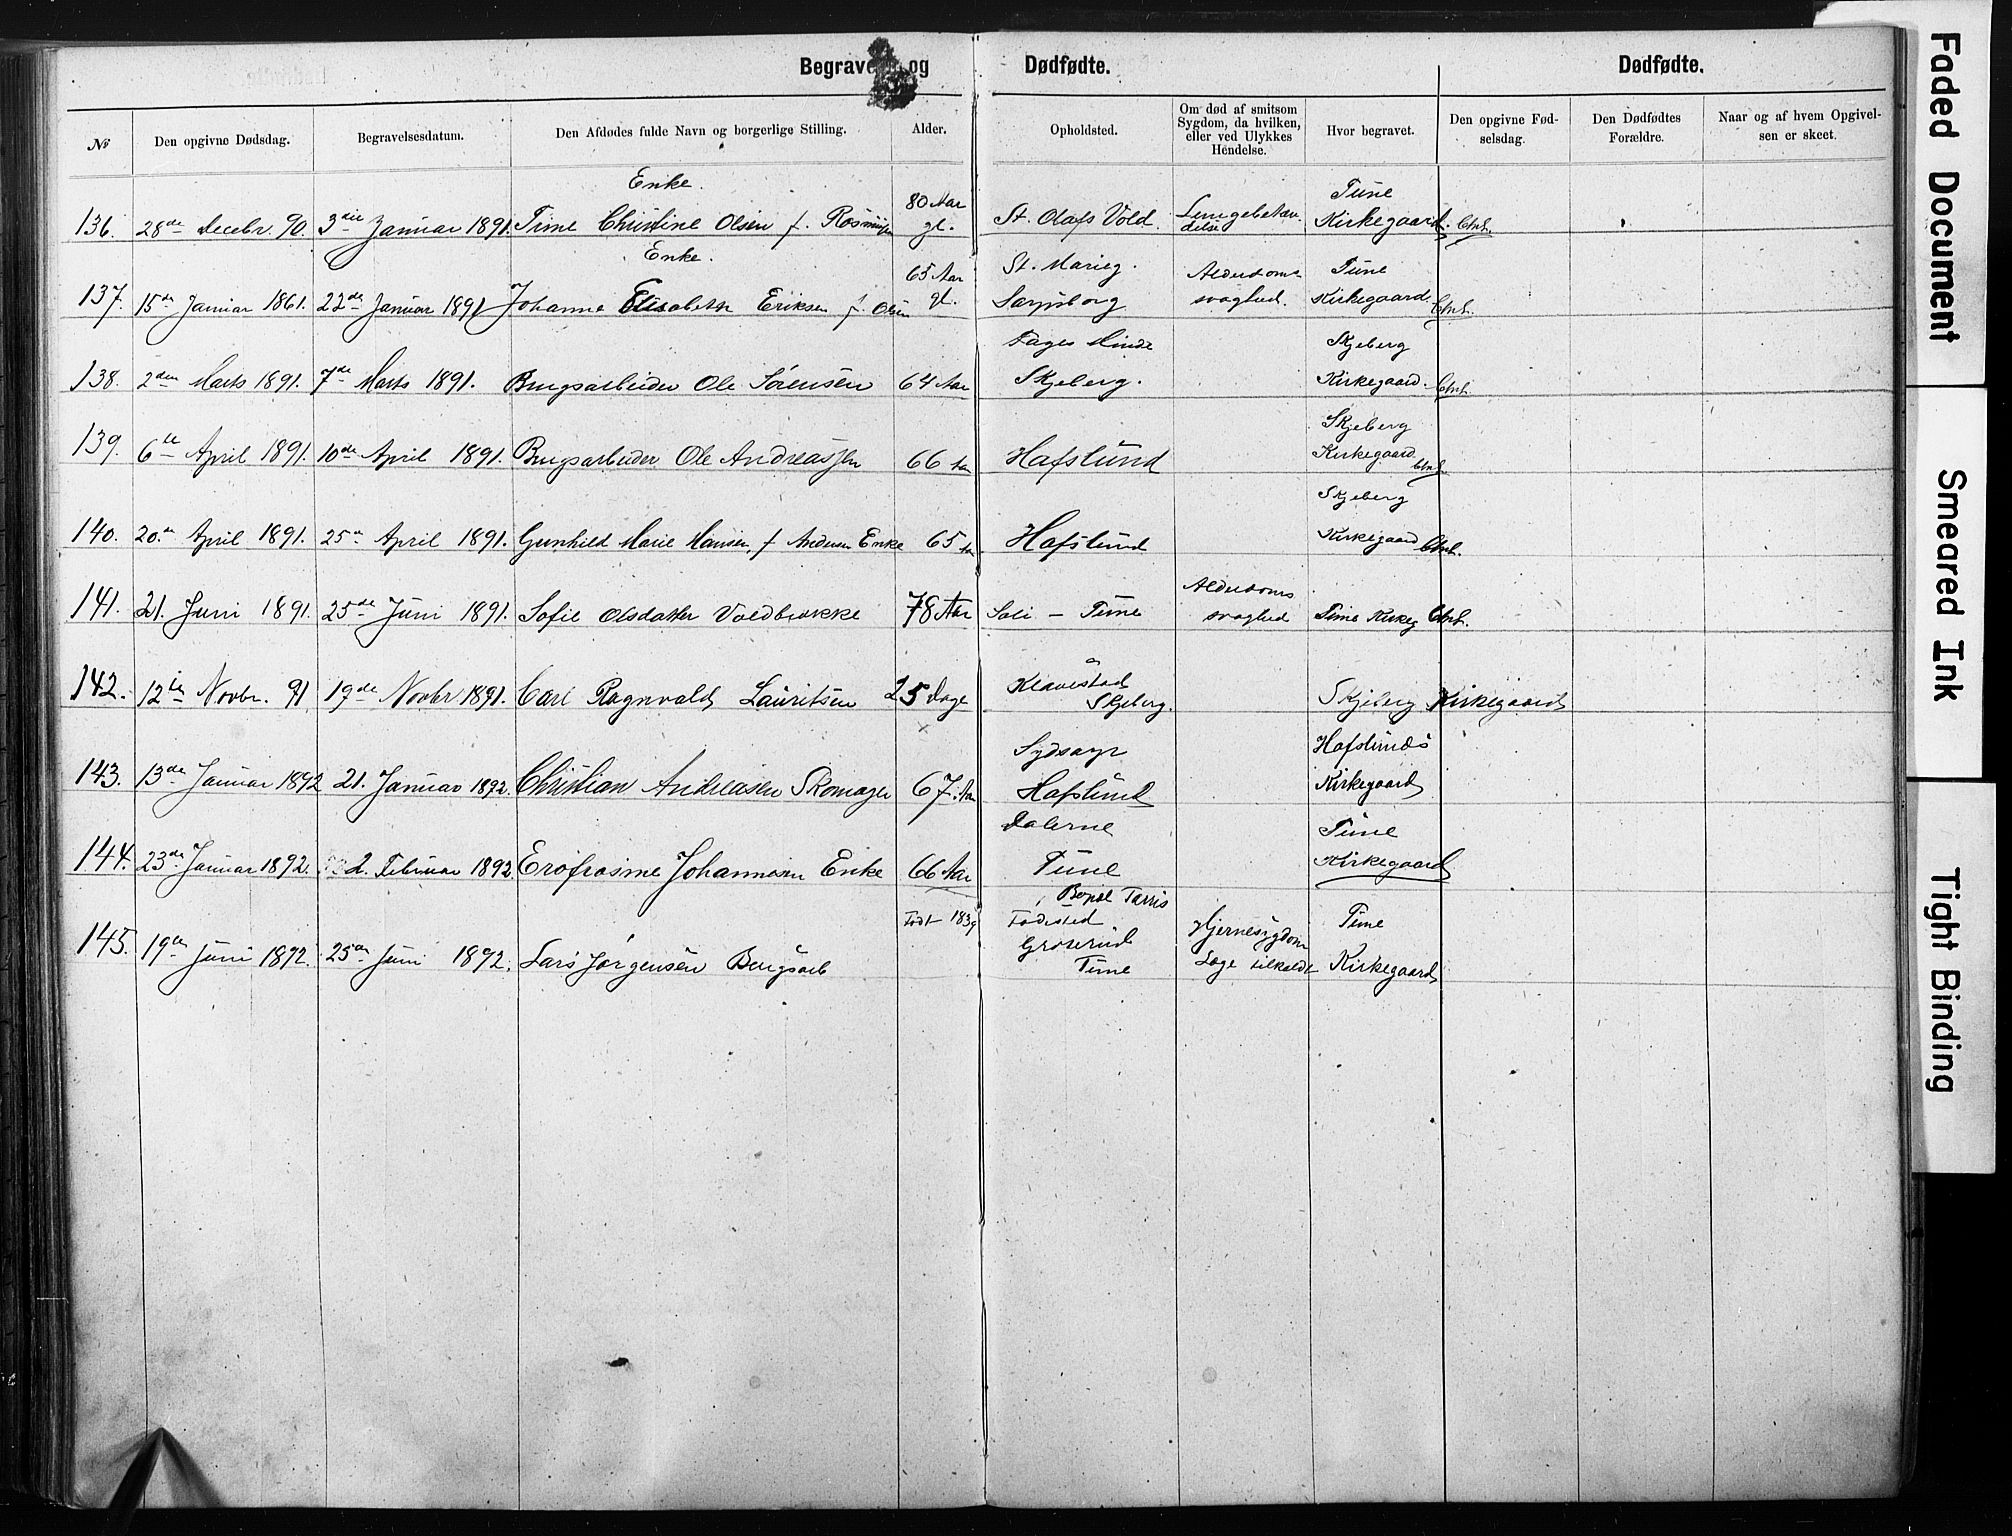 Begrave og Dødfødte. Dødfødte.
№ Den opgivne Dødsdag. Begravelsesdatum. Den Afdødes fulde Navn og borgerlige Stilling. Alder. Opholdsted. Om død af smitsom Sygdom, da hvilken, eller ved Ulykkes Hendelse. Hvor begravet. Den opgivne Fødselsdag. Den Dødfødtes Forældre. Naar og af hvem Opgivelsen er skeet.
Enke. 80 Aar Tune
136. 28de Decebr. 90. 3die Januar 1891. Christine Olsen f. gl. St. Olafs Vold. Lungebetændelse Kirkegaard.
Enke. 65 Aar St. Marieg. Alderdoms Tune
137. 15de Januar 1861. 22de Januar 1891 Johanne Elisabeth Eriksen f. Olsen gl. Sarpsborg svaghed. Kirkegaard.
Dages Minde Skjeberg
138. 2den Marts 1891. 7de Marts 1891. Brugsarbeider Ole Sørensen 64 Aar Skjeberg. Kirkegaard.
Skjeberg
139. 6te April 1891. 10de April 1891. Brugsarbeider Ole Andreassen 66 Aar Hafslund Kirkegaard
Skjeberg
140. 20de April 1891. 25de April 1891. Gunhild Marie Hansen, f Andersen Enke 65 Aar Hafslund Kirkegaard
Alderdoms
141. 21. Juni 1891. 25de Juni 1891. Sofie Olsdatter Voldbrække 78 Aar Soli — Tune svaghed Tune Kirkeg
Klavestad
142. 12te Novbr. 91 19de Novbr 1891. Carl Ragnvald Lauritsen 25 Dage Skjeberg. Skjeberg Kirkegaard
Hafslunds
143. 13de Januar 1892 21. Januar 1892. Christian Andreasen Skomager 67. Aar Hafslund Kirkegaard
Dalerne Tune
144. 23de Januar 1892. 2. Februar 1892. Erofrosine Johannesen Enke 66 Aar Tune Kirkegaard
Bopæl Tarris
Født 1839 Fødested Hjernesygdom Tune
Grøterud
145. 19de Juni 1892. 25de Juni 1892. Lars Jørgensen Brugsarb Tune Læge tilkaldt Kirkegaard
Faded Document
Smeared Ink
Tight Binding